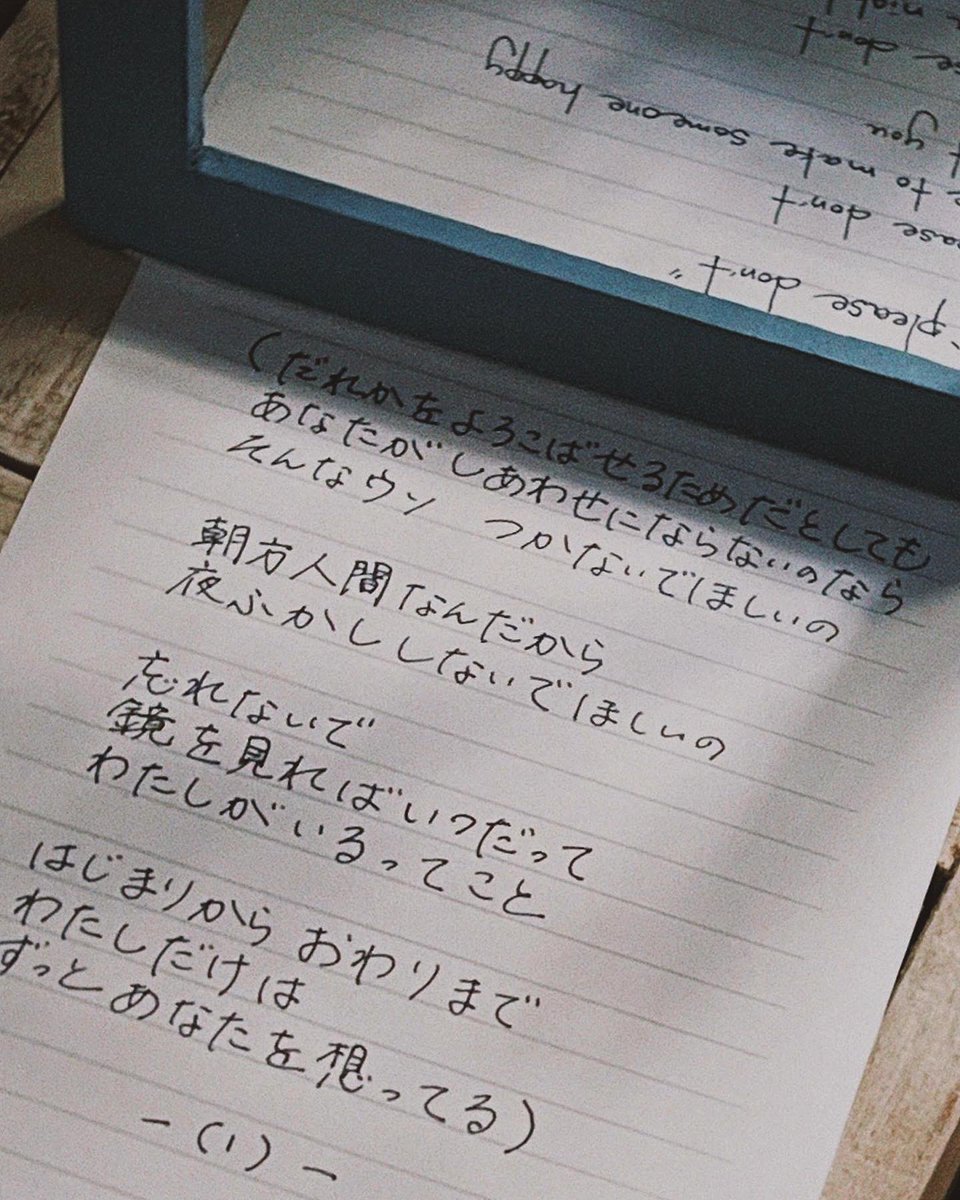 please don't"
don't
to make someone happy
you
don't
night
(だれかをよろこばせるためだとしても
あなたがしあわせにならないのなら
そんなウソ つかないでほしいの
朝方人間なんだから
夜ふかししないでほしいの
忘れないで
鏡を見ればいつだって
わたしがいるってこと
はじまりから おわりまで
わたしだけは
ずっとあなたを想ってる)
-(1)-